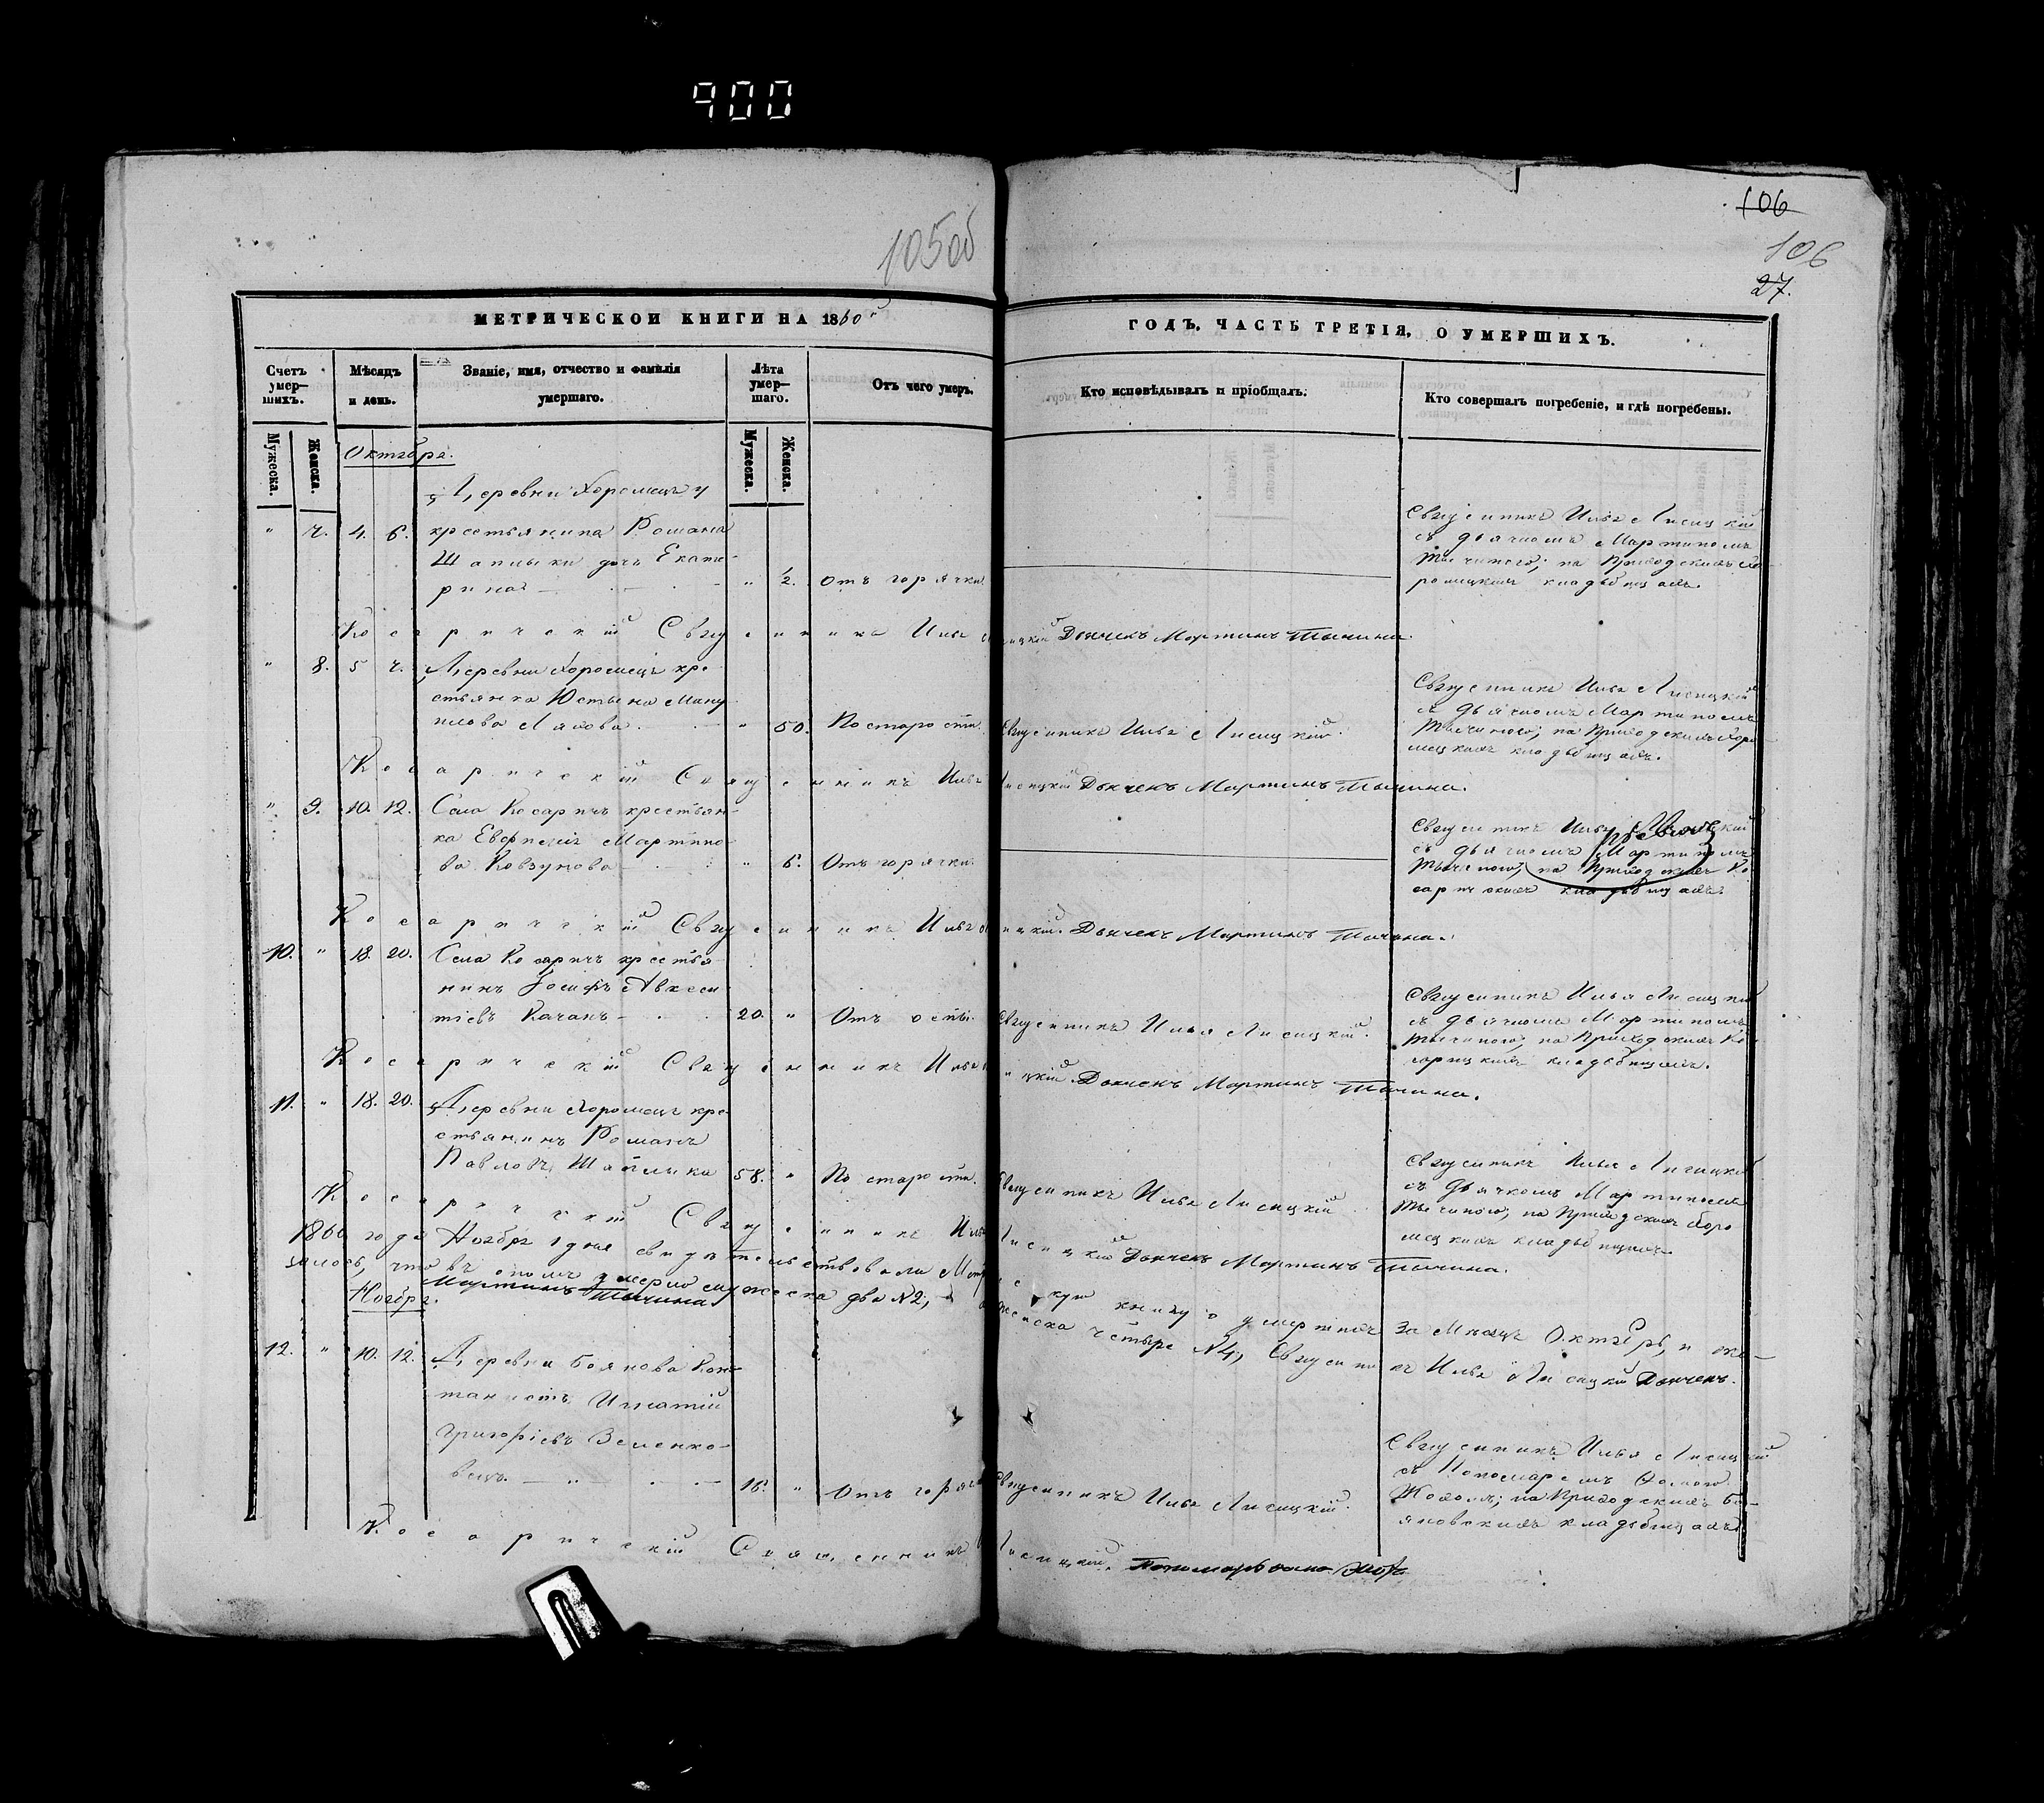 900
105об
106
106
27.
МЕТРИЧЕСКОЙ КНИГИ НА 1860й
ГОДЪ. ЧАСТЬ ТРЕТІЯ, О УМЕРШИХЪ.
Счетъ умер-шихъ.
Мужеска.
Женска.
Мѣсяцъ и день.
Званіе, имя, отчество и фамилія умершаго.
Лѣта умер-шаго.
Мужеска.
Женска.
Отъ чего умеръ.
Кто исповѣдывалъ и пріобщалъ.
Кто совершалъ погребеніе, и гдѣ погребены.
Октября.
Деревни Хоромецъ у
" 7. 4. 6. крестьянина Романа
Шаплыки дочь Екате-
рина " 2. Отъ горячки
Священникъ Илья Лисицкій
съ дьячкомъ Мартиномъ
Тычиною; на Приходскихъ Хо
ромецкихъ кладбищахъ.
Косаричскій Священникъ Илья Лисицкій Дьячекъ Мартинъ Тычина.
" 8. 5 7. Деревни Хоромецъ кре-
стьянка ЮстынаМану
илова Ляхова " 50. По старости. Священникъ Илья Лисицкій.
Священникъ Илья Лисицкій
съ дьячкомъ Мартиномъ
Тычиною; на Приходскихъ Хоро
мецкихъ кладбищахъ.
Косаричскій Священникъ Илья Лисицкій Дьячекъ Мартинъ Тычина.
" 9. 10. 12. Села Косаричъ крестьян-
ка Евфимія Мартино-
ва Ковзунова " 6. Отъ горячки
Священникъ Илья Лисицкій
съ дьячкомъ Мартиномъ
Тычиною, на Приходскихъ Ко
саричскихъ кладбищахъ.
Косаричскій Священникъ Илья Лисицкій. Дьячекъ Мартинъ Тычина.
10. " 18. 20. Села Косаричъ крестья
нинъ Іосифъ Авксен
тіевъ Качанъ 20. " Отъ оспы. Священникъ Илья Лисицкій.
Священникъ Илья Лисицкій
съ дьячкомъ Мартиномъ
Тычиною, на Приходскихъ Ко
сарицкихъ кладбищахъ.
Косаричскій Священникъ Илья Лисицкій Дьячекъ Мартинъ Тычина.
11. " 18. 20. Деревни Хоромецъ кре-
стьянинъ Романъ
Павловъ Шаплыка 58. " По старости. Священникъ Илья Лисицкій
Священникъ Илья Лисицкій
съ дьячкомъ Мартиномъ
Тычиною, на Приходскихъ Хоро
мецкихъ кладбищахъ
Косаричскій Священникъ Илья Лисицкій Дьячекъ Мартинъ Тычина.
1860 года Ноября 1 дня свидѣтельствовали Метрическую книгу о умершихъ за Мѣсяцъ Октябрь, и ока-
залось, что въ ономъ умерло мужеска два №2, а женска четыре №4, Священникъ Илья Лисицкій Дьячекъ.
Мартинъ Тычина
Ноября.
12. " 10. 12. Деревни Боянова Кон-
тонистъ Игнатій
Григоріевъ Зеленко-
вецъ. 18. " Отъ горячки Священникъ Илья Лисицкій.
Священникъ Илья Лисицкій
съ Пономаремъ Ѳомою
на Приходскихъ Бо-
яновскихъ кладбищахъ
Косаричскій Священникъ Лисицкій. Пономарь Ѳома